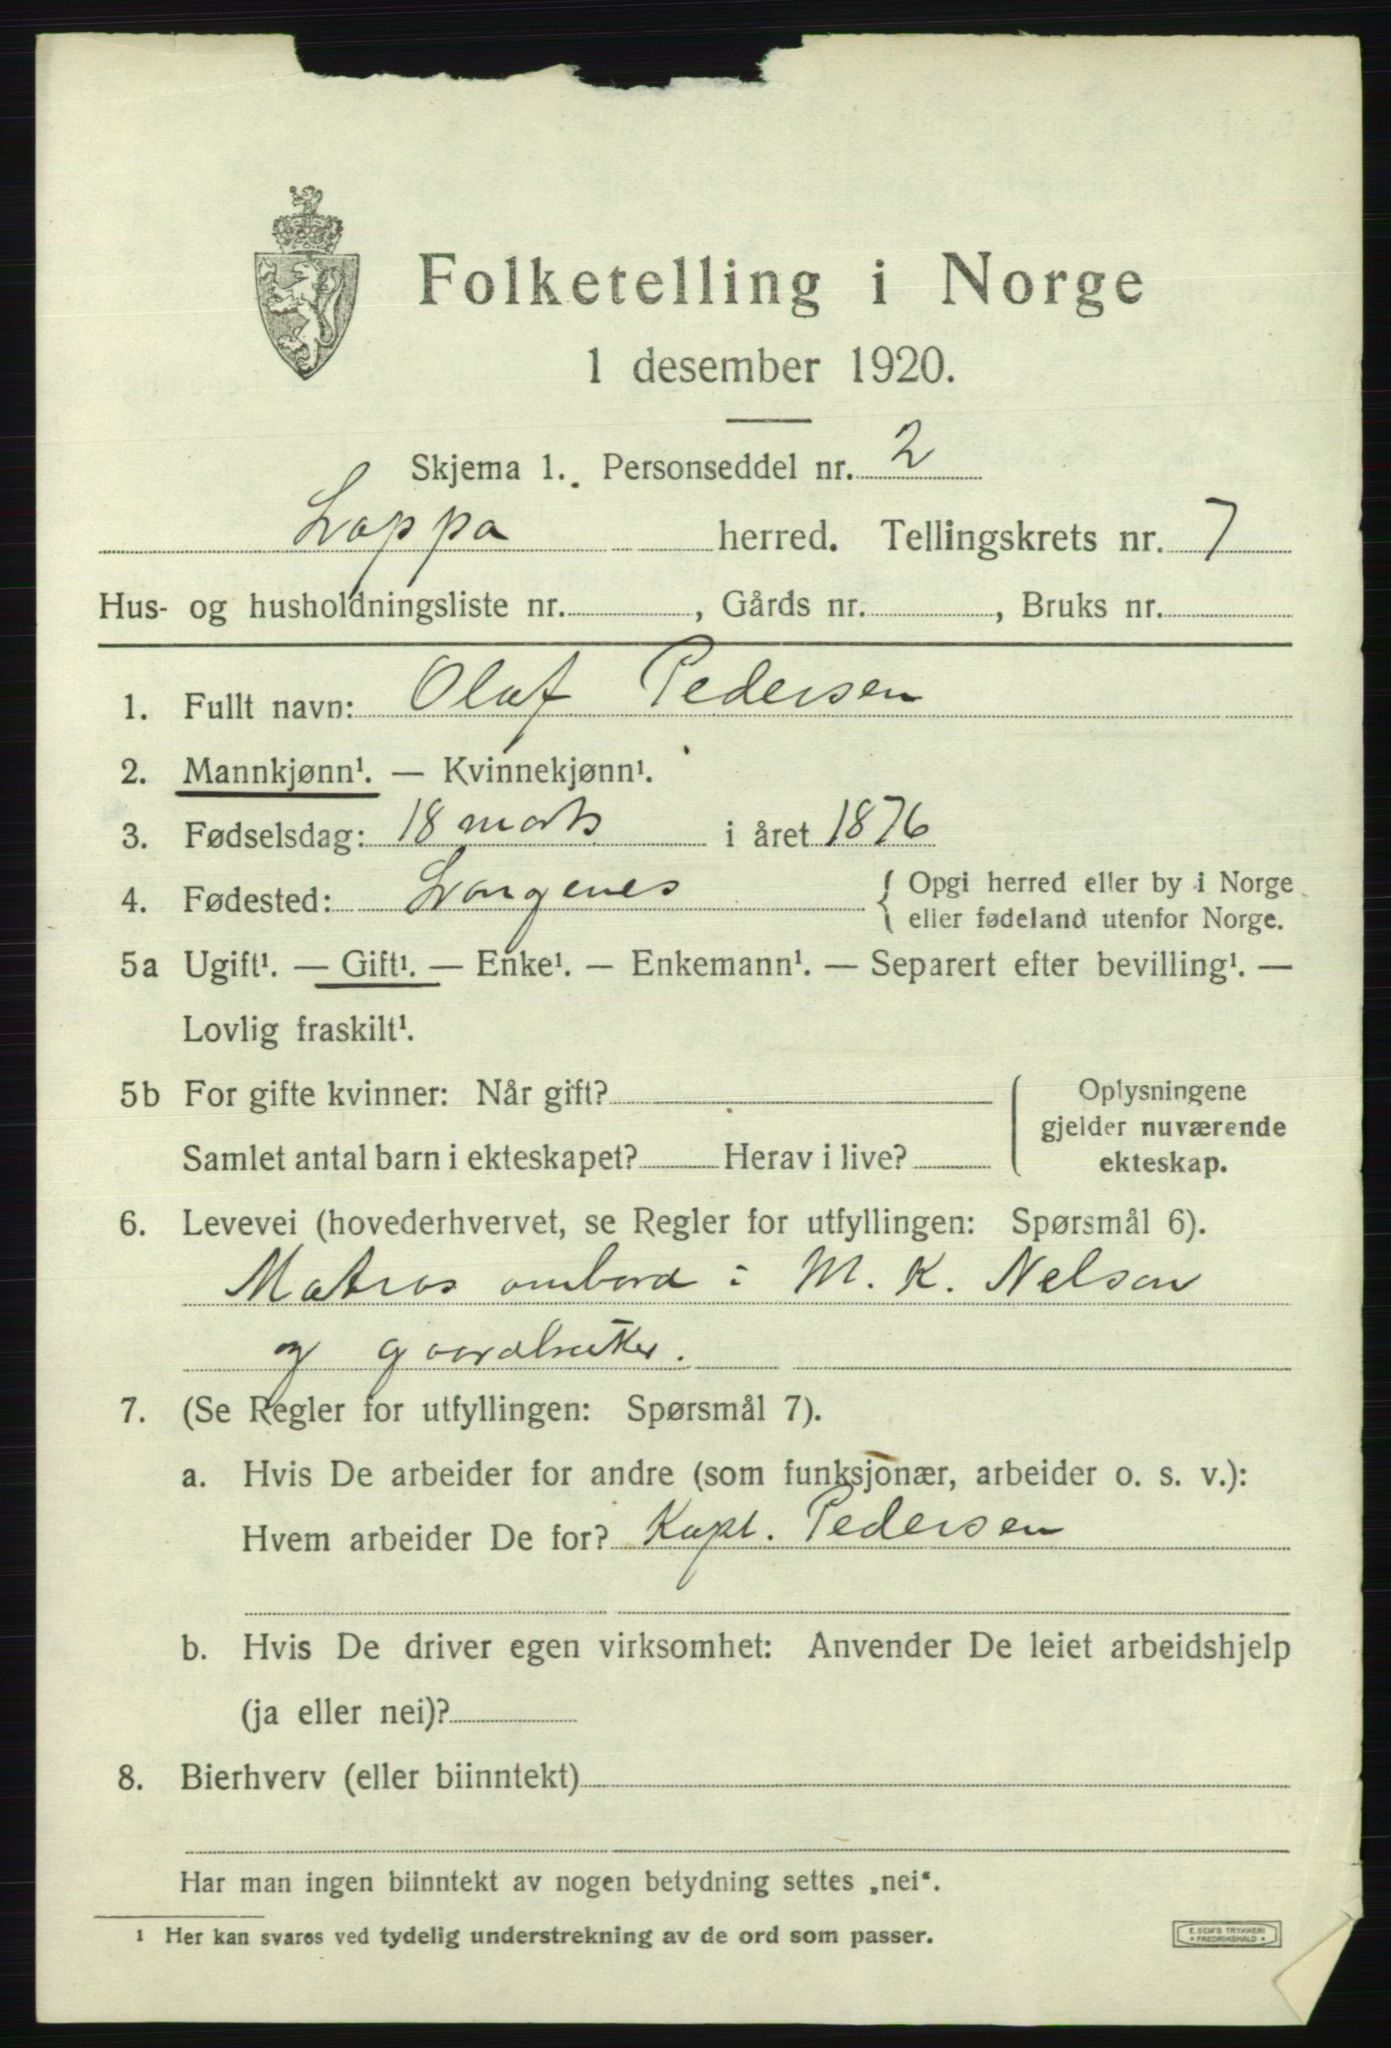 Folketelling i Norge
1 desember 1920.
Skjema 1. Personseddel nr. 2
Loppa herred. Tellingskrets nr. 7
Hus- og husholdningsliste nr. , Gårds nr. , Bruks nr.
1. Fullt navn: Olaf Pedersen
2. Mannkjønn¹. — Kvinnekjønn¹.
3. Fødselsdag: 18 marts i året 1876
4. Fødested: Langenes { Opgi herred eller by i Norge
eller fødeland utenfor Norge.
5a Ugift¹. — Gift¹. — Enke¹. — Enkemann¹. — Separert efter bevilling¹. —
Lovlig fraskilt¹.
5b For gifte kvinner: Når gift? ( Oplysningene
gjelder nuværende
Samlet antal barn i ekteskapet? Herav i live? ekteskap.
6. Levevei (hovederhvervet, se Regler for utfyllingen: Spørsmål 6).
Matros ombord i M. K. Nelson
og gaardbruker.
7. (Se Regler for utfyllingen: Spørsmål 7).
a. Hvis De arbeider for andre (som funksjonær, arbeider o. s. v.):
Hvem arbeider De for? Kapt. Pedersen
b. Hvis De driver egen virksomhet: Anvender De leiet arbeidshjelp
(ja eller nei)?
8. Bierhverv (eller biinntekt)
Har man ingen biinntekt av nogen betydning settes „nei“.
¹ Her kan svares ved tydelig understrekning av de ord som passer.
E. SEM'S TRYKKERI
FREDRIKSHALD